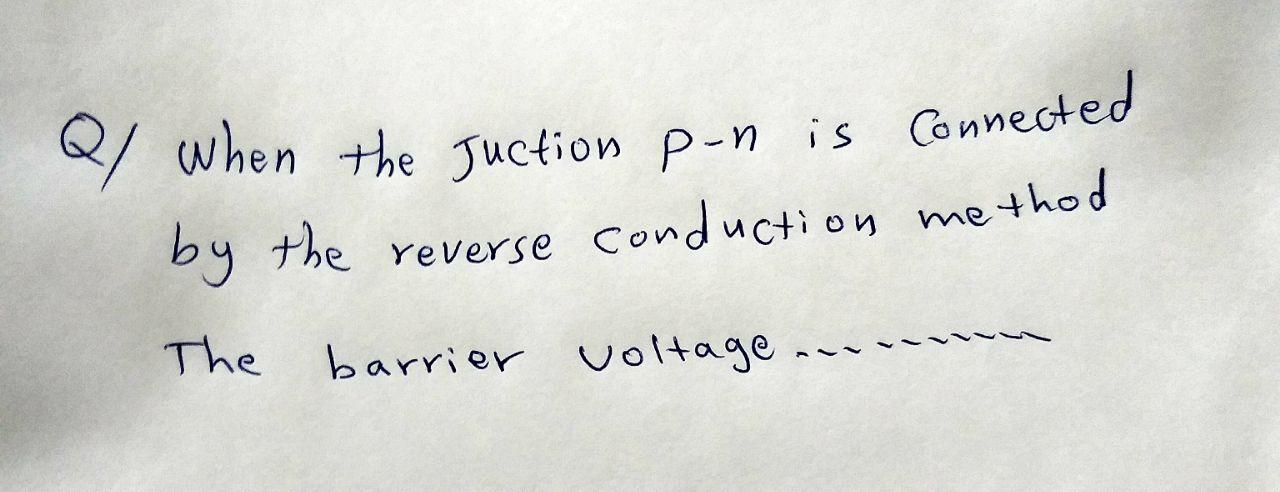 Q/ When the Juction P-n is Connected
by the reverse conduction method
The barrier voltage ..........